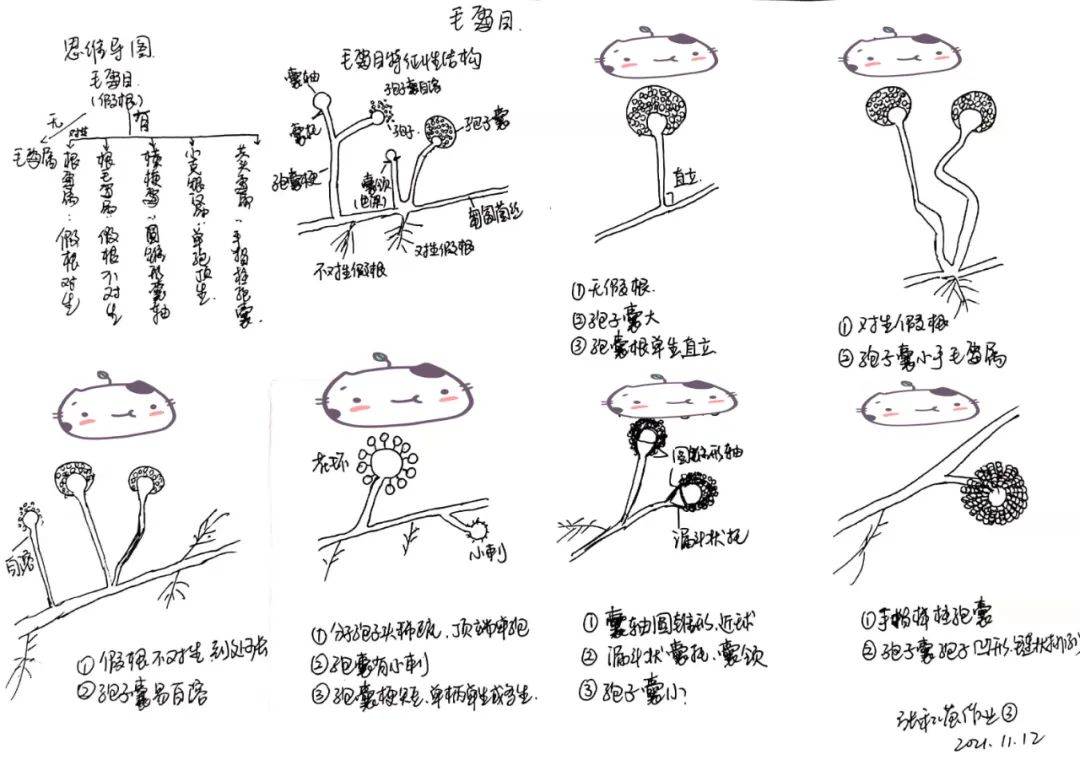 毛霉目.
思维导图
毛霉目.
(假根)
无
有
对生
毛霉属
根霉属:假根对生
根毛霉属:假根不对生
横梗霉:圆锥形囊轴
小克银汉属:单孢顶生.
共头霉属:手指柱孢囊.
毛霉目特征性结构
囊轴
孢子囊自溶
囊托
孢子
孢子囊
孢囊梗
囊领
匍匐菌丝
不对生假根
对生假根
直立
①无假根.
②孢子囊大
③孢囊梗单生直立
①对生假根
②孢子囊小于毛霉属
自溶
①假根不对生 到处可长
②孢子囊易自溶
小刺
①分孢子头稀疏,顶端单孢
②孢囊有小刺
③孢囊梗短,单柄单生或多生.
圆锥形轴
漏斗状托
①囊轴圆锥形,近球
②漏斗状囊托,囊领
③孢子囊小
①手指样柱孢囊
②孢子囊孢子凹形,链状排列
作业③
2021.11.12